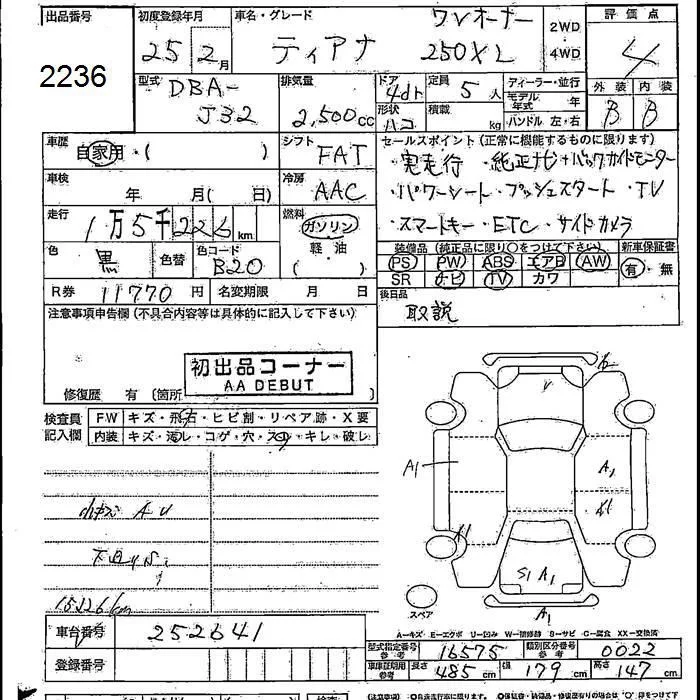 出品番号 初度登録年月 車名・グレード ワンオーナー 評価点
2236 25年 2月 ティアナ 250XL 2WD 4WD 4
型式 DBA-J32 排気量 2,500cc ドア 4dr 定員 5人 ディーラー・並行 外装 内装
形状 ハコ 積載 kg モデル年式 年 ハンドル 左・右 B B
車歴 自家用・( ) シフト FAT セールスポイント(正常に機能するものに限ります)
・実走行 ・純正ナビ+バックガイドモニター
車検 年 月( 日) 冷房 AAC ・パワーシート・プッシュスタート・TV
走行 1万5千226km 燃料 ガソリン ・スマートキー・ETC・サイドカメラ
軽・油
( )
色 黒 色替 色コード B20 装備品(純正品に限り○をつけて下さい) 新車保証書
PS PW ABS エアB AW 有・無
SR ナビ TV カワ
R券 11770円 名変期限 月 日 後日品
取説
注意事項申告欄(不具合内容等は具体的に記入して下さい)
初出品コーナー
AA DEBUT
修復歴 有(箇所 )
検査員記入欄 FW キズ・飛石・ヒビ割・リペア跡・X要
内装 キズ・汚レ・コゲ・穴・スレ・キレ・破レ
小キズ AU
下廻りS1
15226km
A1
A1
S1 A1
A1
スペア
A-キズ E-エクボ U-凹み W-補修跡 S-サビ C-腐食 XX-交換済
車台番号 252641
型式指定番号 参考 16575 類別区分番号 参考 0022
登録番号 車庫証明用 参考 長さ 485cm 幅 179cm 高さ 147cm